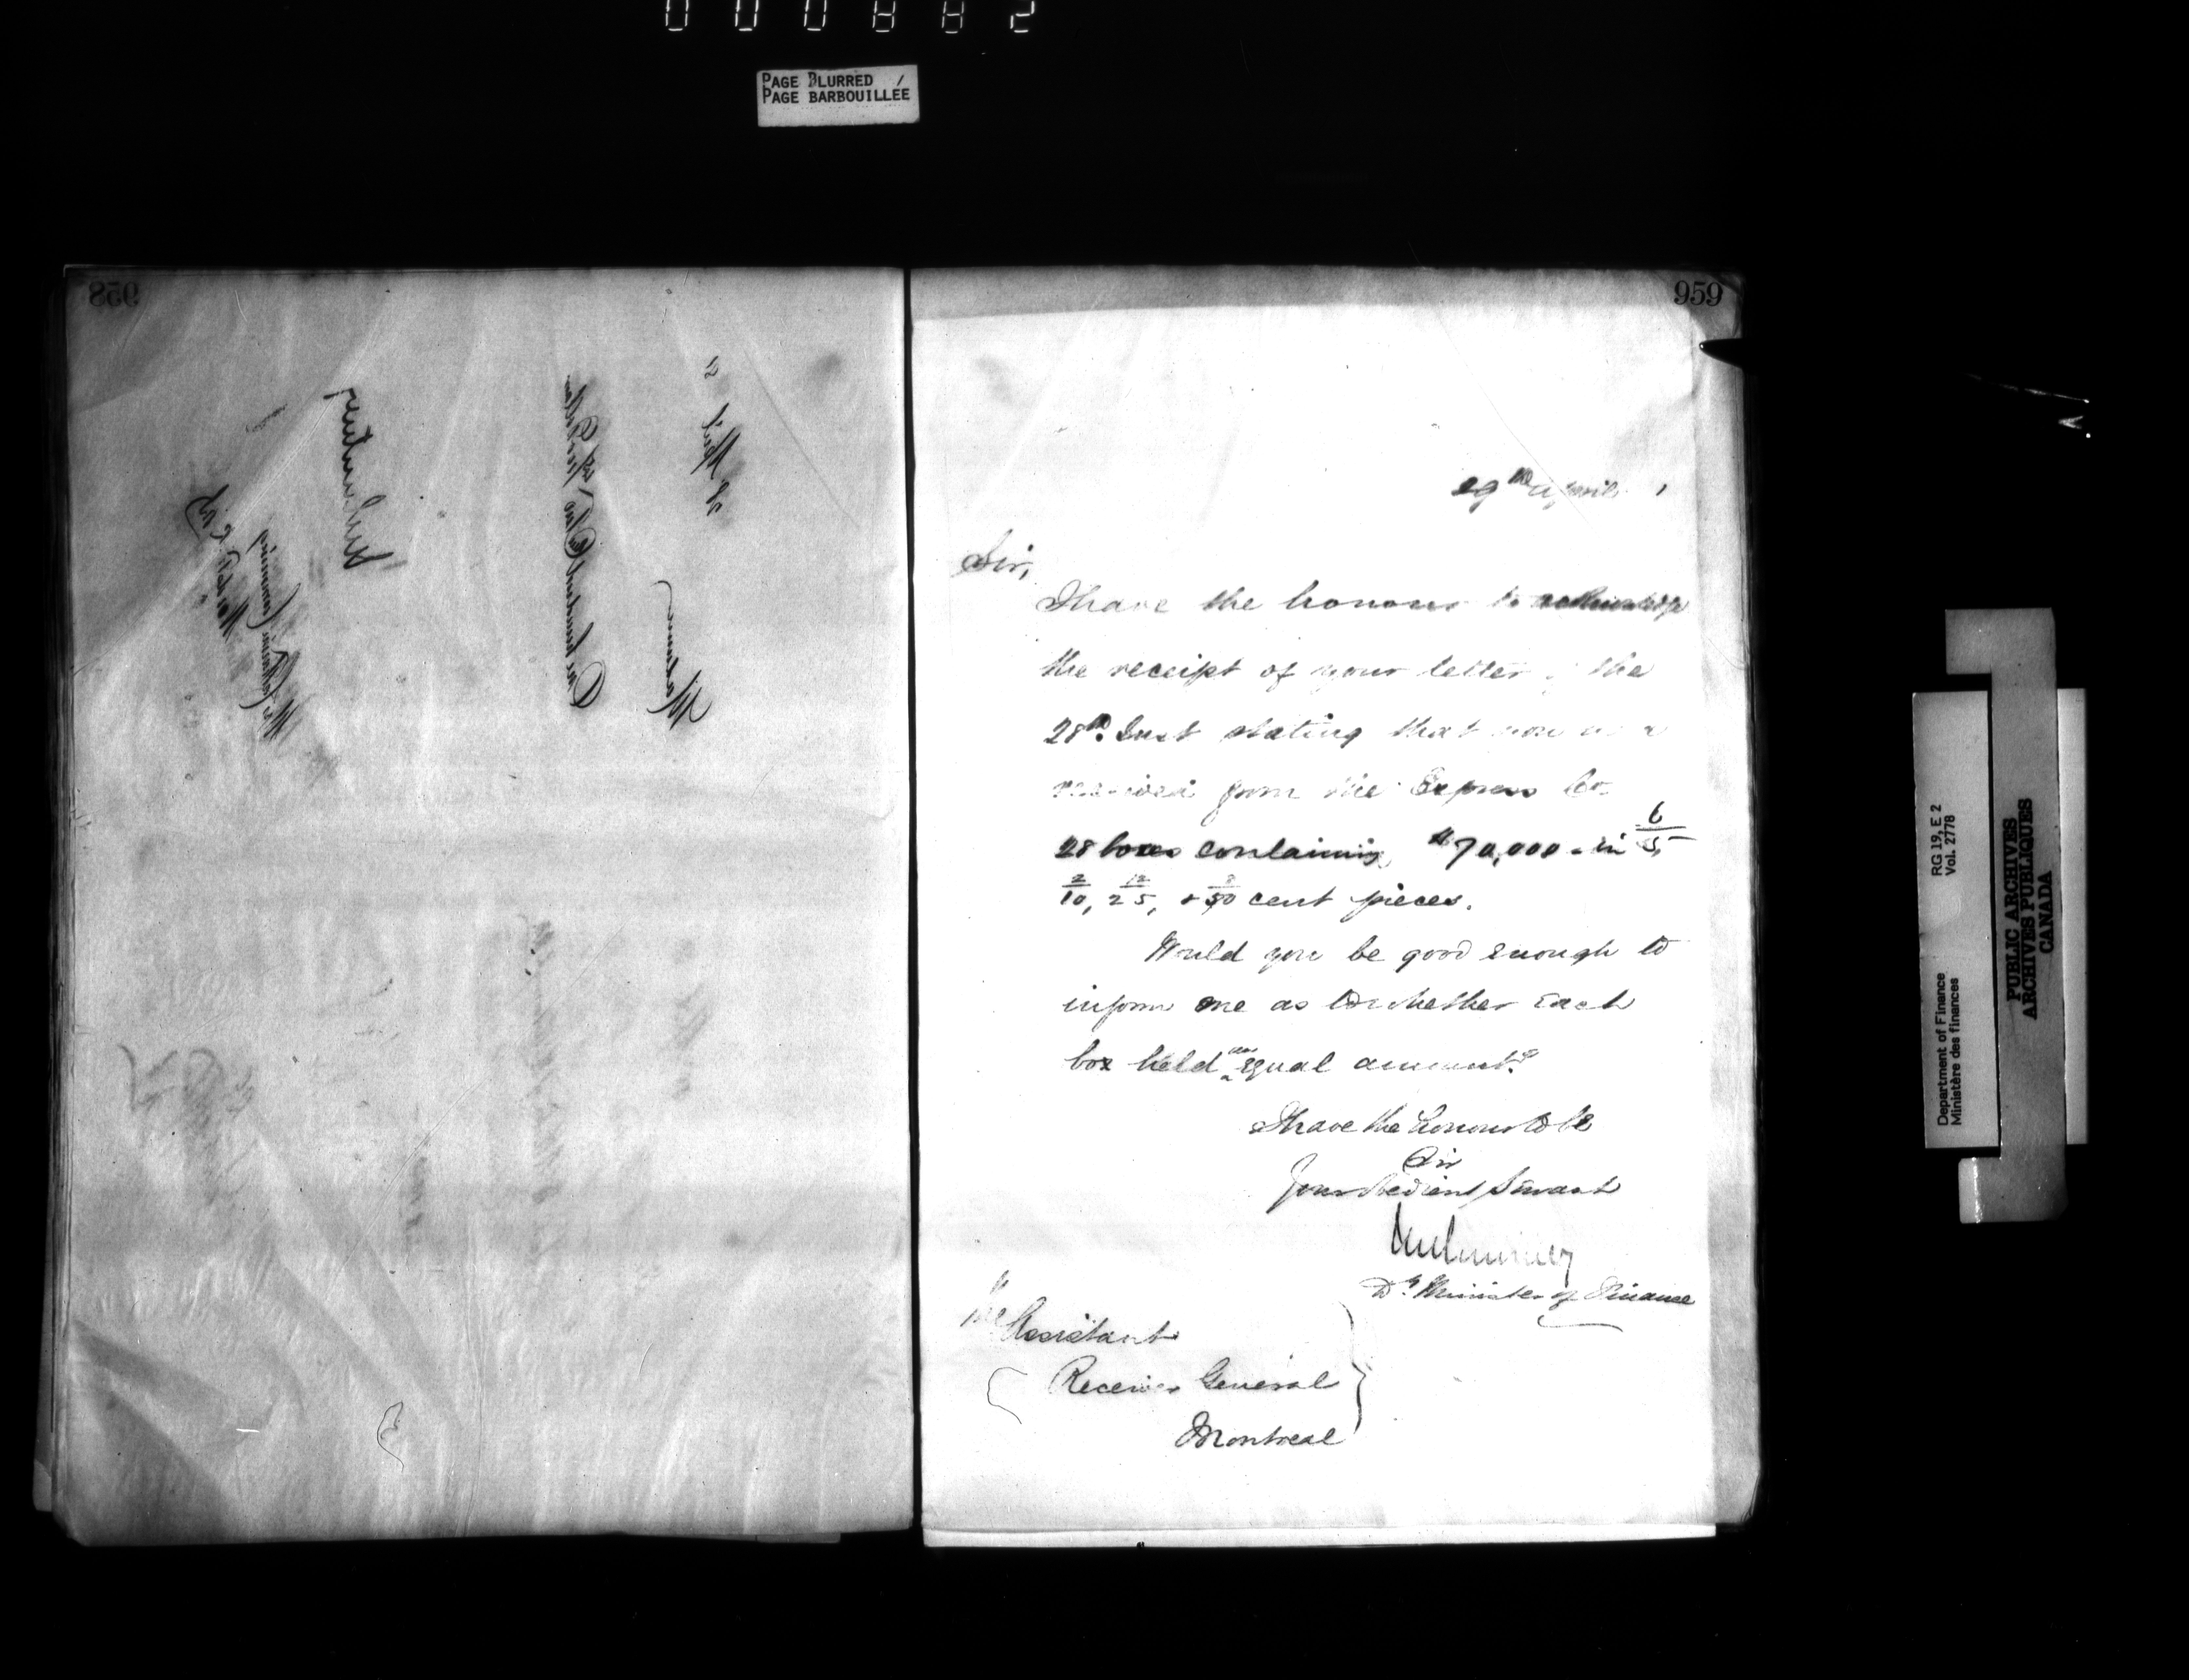 000882
PAGE BLURRED
PAGE BARBOUILLÉE
958
Madame
One hundred & Two
Mrs Catherine Cumming
959
29th April
Sir,
I have the honour to acknowledge
the receipt of your letter of the
28th Inst stating that you
received from the Express Co
28 boxes containing $70,000 - in 6/5,
2/10, 12/25, & 8/50 cent pieces.
Would you be good enough to
inform me as to whether each
box held an equal amount.
I have the honour to be
Sir
Your obedient Servant
JMCourtney
Dy. Minister of Finance
The Assistant
Receiver General
Montreal
RG 19, E 2
Vol. 2778
Department of Finance
Ministère des finances
PUBLIC ARCHIVES
ARCHIVES PUBLIQUES
CANADA